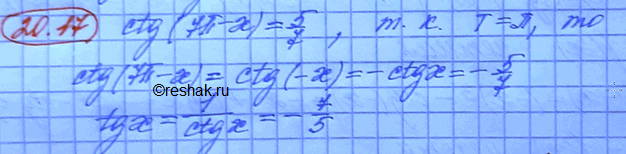 20.17 ctg(7π-x)=5/7, т.к. T=π, то
ctg(7π-x)=ctg(-x)=-ctgx=-5/7
©reshak.ru
tgx=1/ctgx=-7/5